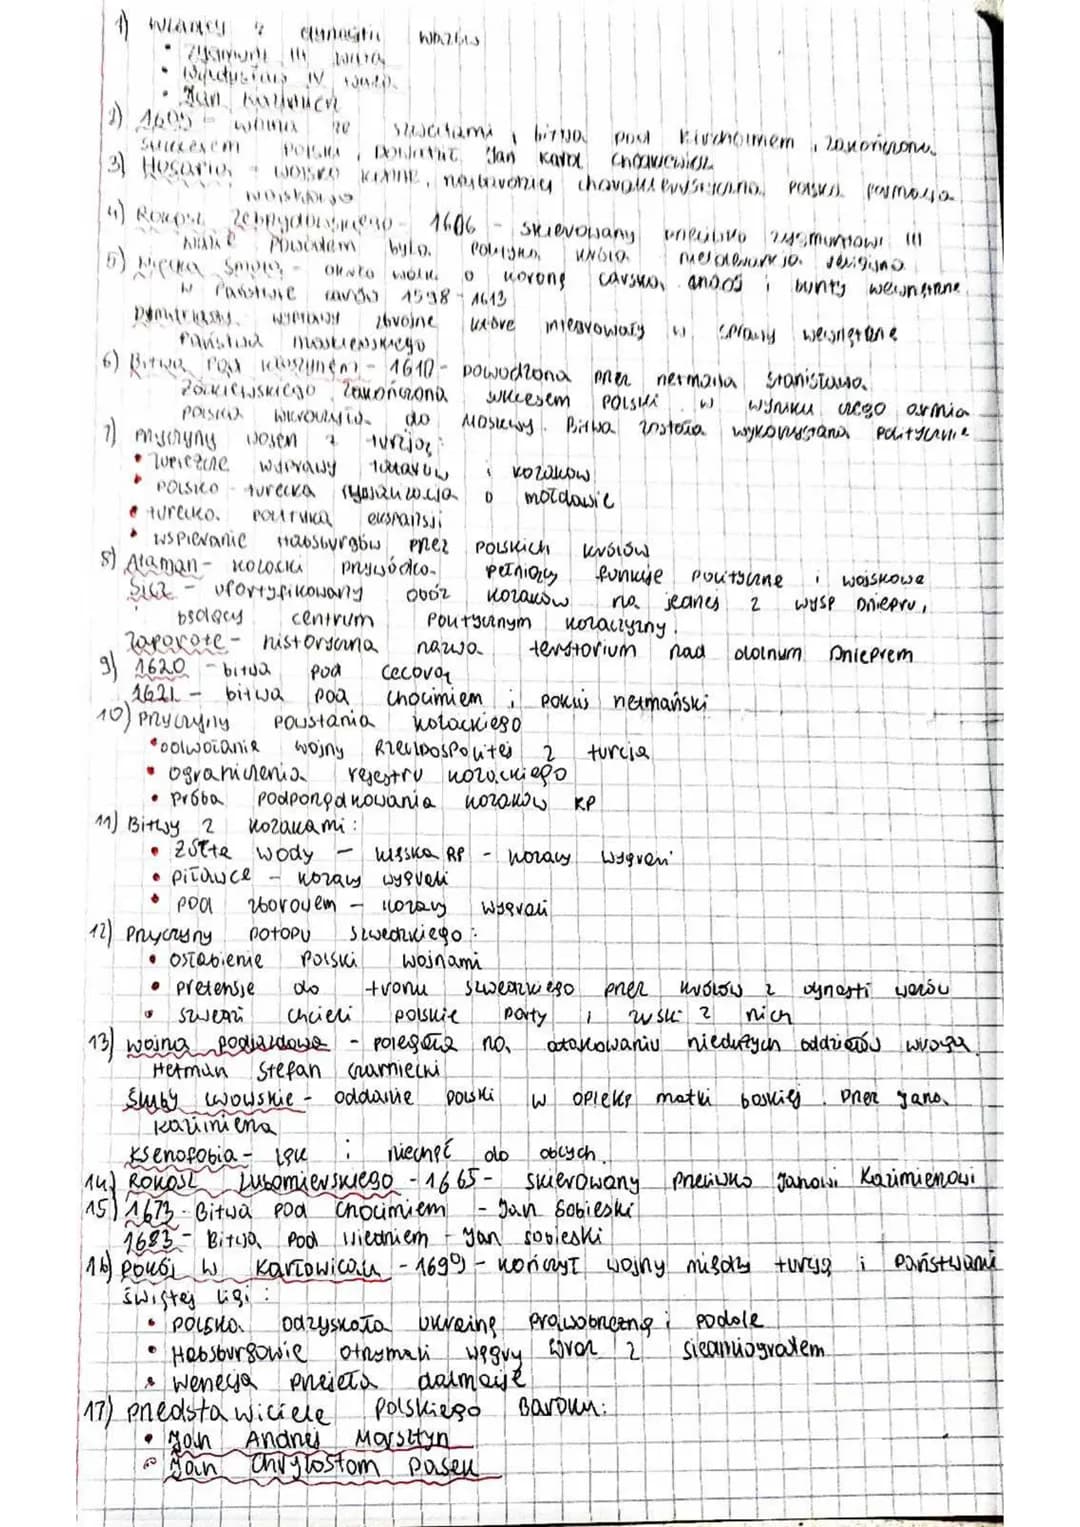 1) Władcy z dynastii Wazów
• Zygmunt III Waza
• Władysław IV Waza
• Jan Kazimierz
2) 1605 - wojna ze szwedami, bitwa pod Kircholmem, zakończona
sukcesem Polski, Dowodził Jan Karol Chodkiewicz
3) Husaria - wojsko konne, najbardziej charakterystyczna polska formacja
wojskowa
4) Rokosz Zebrzydowskiego - 1606 - skierowany przeciwko Zygmuntowi III
Wazie Powodem była polityka króla nietolerancja religijna
5) Wielka Smuta - okres walk o koronę carską, anarchii i bunty wewnętrzne
w Państwie carów 1598 - 1613
Dymitriady wyprawy zbrojne które ingerowały w sprawy wewnętrzne
Państwa moskiewskiego
6) Bitwa pod Kłuszynem - 1610 - powodzona przez hetmana Stanisława
Żółkiewskiego zakończona sukcesem Polski w wyniku czego armia
polska wkroczyła do Moskwy. Bitwa została wykorzystana politycznie
7) Przyczyny wojen z turcją:
• łupieżcze wyprawy tatarów i kozaków
• polsko - turecka rywalizacja o mołdawie
• turecka polityka ekspansji
• wspieranie Habsburgów przez polskich królów
8) Ataman - kozacki przywódca pełniący funkcje polityczne i wojskowe
Sicz - ufortyfikowany obóz kozaków na jednej z wysp Dniepru,
będący centrum politycznym kozaczyzny.
Zaporoże - historyczna nazwa terytorium nad dolnym Dnieprem
9) 1620 - bitwa pod Cecorą
1621 - bitwa pod chocimiem i pokój hetmański
10) Przyczyny powstania kozackiego
• odwołanie wojny Rzeczpospolitej z turcją
• ograniczenia rejestru kozackiego
• próba podporządkowania kozaków RP
11) Bitwy z kozakami:
• Żółte wody - klęska RP - kozacy wygrali
• piławce - kozacy wygrali
• pod zborovem - kozacy wygrali
12) Przyczyny potopu szwedzkiego:
• osłabienie Polski wojnami
• pretensje do tronu szwedzkiego przez królów z dynasti wazów
• szwedzi chcieli polskie porty i zyski z nich
13) wojna podjazdowa - polegała na atakowaniu niedużych oddziałów wroga.
Hetman Stefan Czarniecki
Śluby lwowskie - oddanie polski w opiekę matki boskiej. przez Jana
Kazimierza
Ksenofobia - lęk i niechęć do obcych.
14) Rokosz Lubomierskiego - 1665 - skierowany przeciwko Janowi Kazimierzowi
15) 1673 - Bitwa pod Chocimiem - Jan Sobieski
1683 - Bitwa pod Wiedniem - Jan sobieski
16) Pokój w Karłowicach - 1699 - kończył wojny między turcją i państwami
świętej ligi:
• Polska odzyskała ukrainę prawobrzeżną i podole
• Habsburgowie otrzymali węgry wraz z siedmiogrodem
• Wenecja przejęła dalmację
17) przedstawiciele polskiego Baroku:
• Jan Andrzej Morsztyn
• Jan Chryzostom Pasek